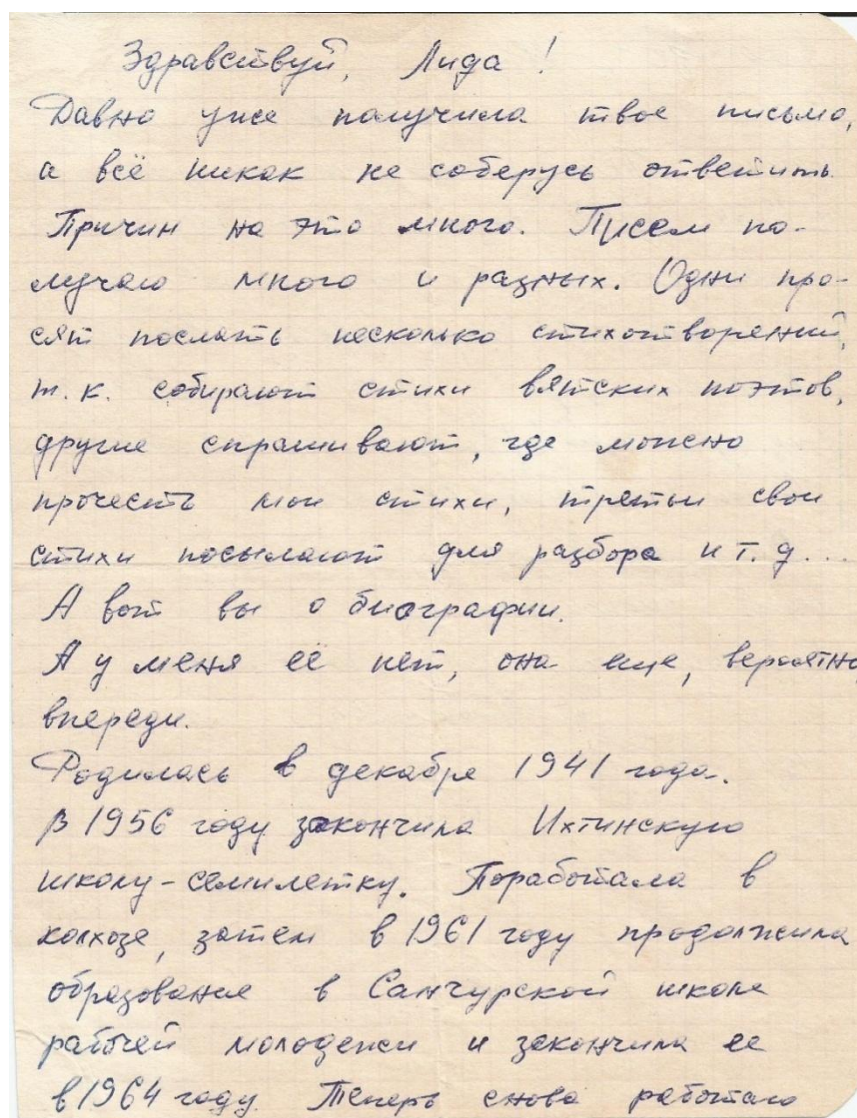 Здравствуй, Лида!
Давно уже получила твое письмо,
а всё никак не соберусь ответить
Причин на это много. Писем по-
лучаю много и разных. Одни про-
сят послать несколько стихотворений,
т.к. собирают стихи вятских поэтов,
другие спрашивают, где можно
прочесть мои стихи, третьи свои
стихи посылают для разбора и т.д...
А вот вы о биографии.
А у меня её нет, она еще, вероятно,
впереди.
Родилась в декабре 1941 года.
В 1956 году закончила Ихтинскую
школу-семилетку. Поработала в
колхозе, затем в 1961 году продолжила
образование в Санчурской школе
рабочей молодежи и закончила ее
в 1964 году. Теперь снова работаю